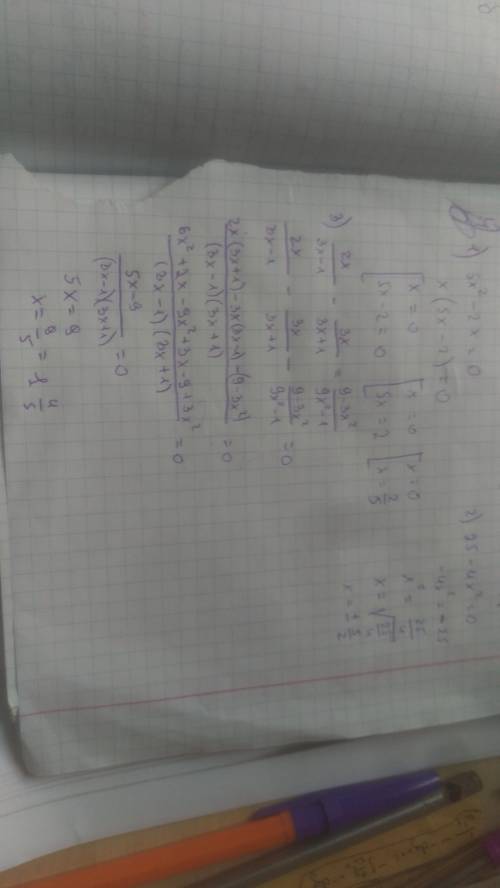 1) 5x² - 2x = 0
x(5x - 2) = 0
[x = 0 [x = 0 [x = 0
[5x - 2 = 0 [5x = 2 [x = 2/5
2) 25 - 4x² = 0
-4x² = -25
x² = 25/4
x = √25/4
x = ± 5/2
3) 2x/3x-1 - 3x/3x+1 = 9-3x²/9x²-1
2x/3x-1 - 3x/3x+1 - 9-3x²/9x²-1 = 0
2x(3x+1)-3x(3x-1)-(9-3x²)/(3x-1)(3x+1) = 0
6x²+2x-9x²+3x-9+3x²/(3x-1)(3x+1) = 0
5x-9/(3x-1)(3x+1) = 0
5x = 9
x = 9/5 = 1 4/5